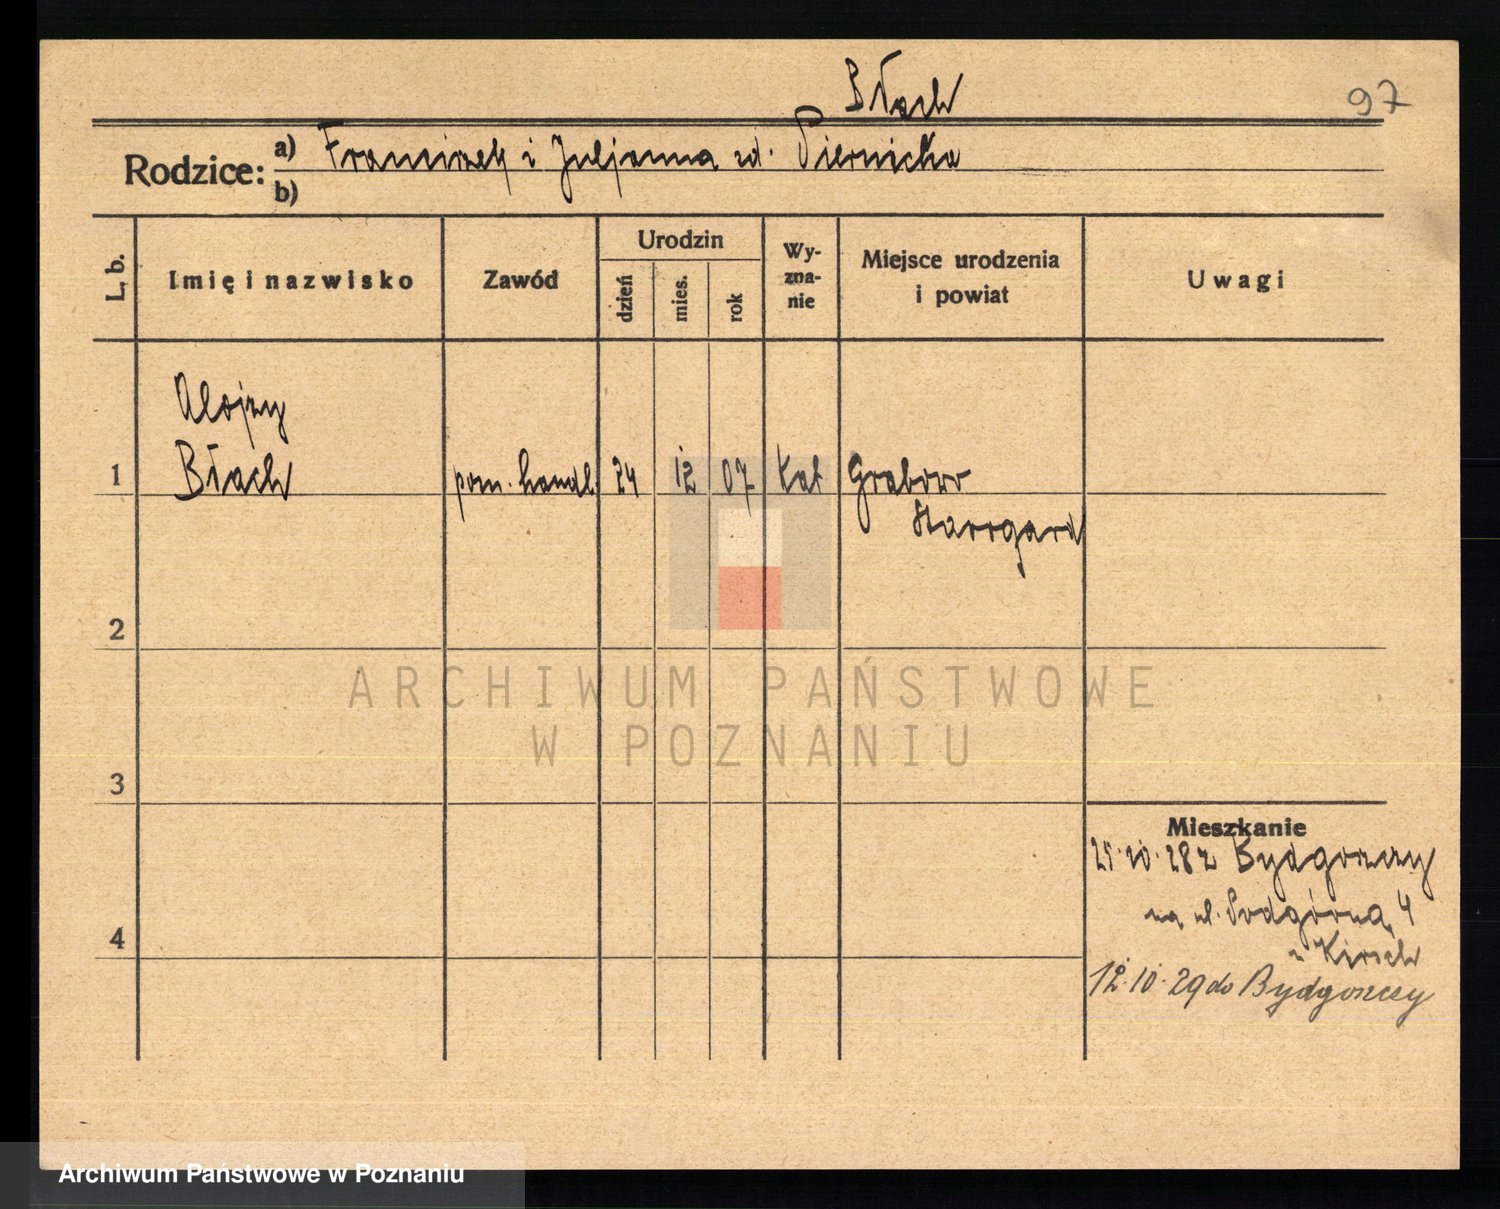 Błach
97
Rodzice:
a) Franciszek i Juljanna zd. Piernicka
b)
L. b.
Imię i nazwisko
Zawód
Urodzin
dzień
mies.
rok
Wy-
zna-
nie
Miejsce urodzenia
i powiat
Uwagi
Alojzy
1 Błach pom. handl. 24 12 07 kat Grabowo
Starogard
2
ARCHIWUM PAŃSTWOWE
W POZNANIU
3
Mieszkanie
25.10.28 z Bydgoszczy
na ul. Podgórną 4
4
u Kirsch
12.10.29 do Bydgoszczy
Archiwum Państwowe w Poznaniu